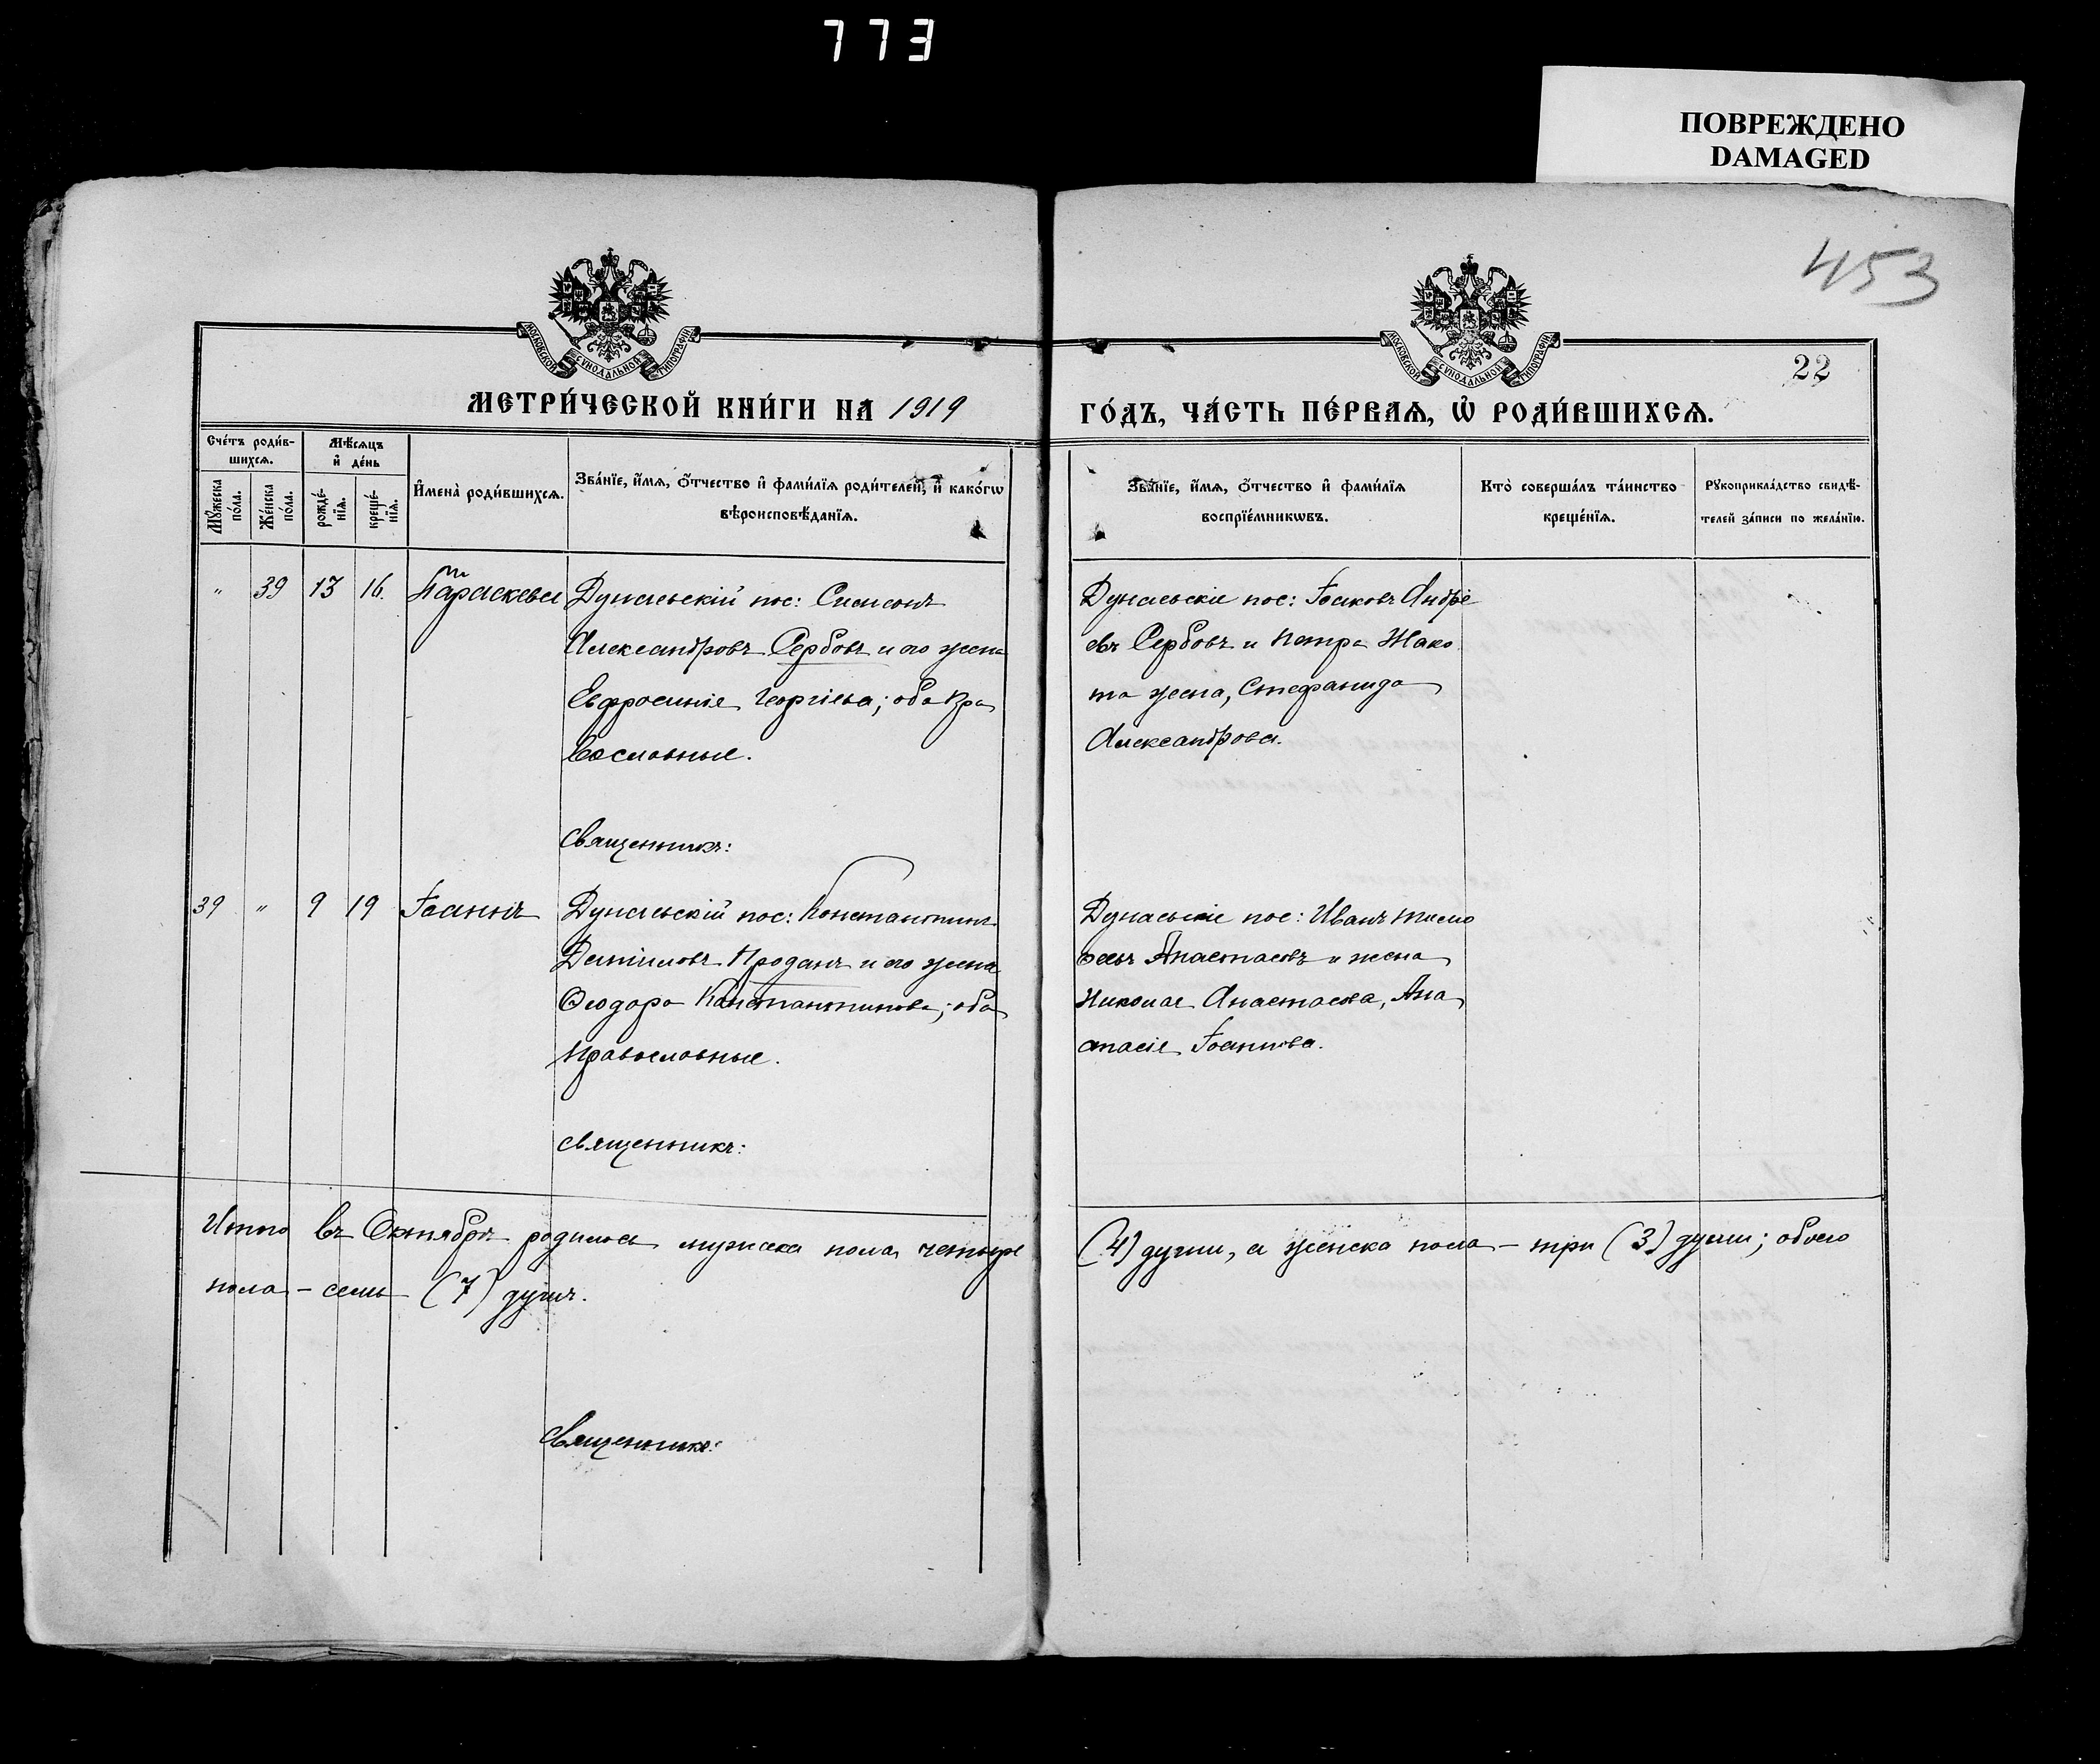 773
ПОВРЕЖДЕНО
DAMAGED
453
МОСКОВСКОЙ СѴНОДАЛЬНОЙ ТИПОГРАФІИ
МОСКОВСКОЙ СѴНОДАЛЬНОЙ ТИПОГРАФІИ
22
МЕТРИ́ЧЕСКОЙ КНИ́ГИ НА 1919
ГО́ДЪ, ЧА́СТЬ ПЕ́РВАѦ, Ѡ҆ РОДИ́ВШИХСѦ.
Сче́тъ роди́в-
шихсѧ.
Мꙋ́жеска по́ла.
Же́нска по́ла.
Мѣ́сѧцъ
и҆ де́нь
рожде́-
нїѧ.
креще́-
нїѧ.
И҆мена̀ роди́вшихсѧ.
Зва́нїе, и҆́мѧ, ѻ҆́тчество и҆ фами́лїѧ роди́телей, и҆ како́гѡ
вѣроисповѣ́данїѧ.
Зва́нїе, и҆́мѧ, ѻ҆́тчество и҆ фами́лїѧ
воспрїе́мникѡвъ.
Кто̀ соверша́лъ та́инство
креще́нїѧ.
Рꙋкоприкла́дство свидѣ́-
телей за́писи по жела́нїю.
" 39 13 16. Параскева
Дунаевскій пос: Симеонъ
Александровъ Сербовъ и его жена
Евфросинія Георгіева; оба пра
вославные.
Священникъ:
Дунаевскіе пос: Іаковъ Андре
евъ Сербовъ и Петра Жако
та жена, Стефанида
Александрова.
39 " 9 19 Іоаннъ
Дунаевскій пос: Константинъ
Даніиловъ Проданъ и его жена
Ѳеодора Константинова; оба
православные.
священникъ:
Дунаевскіе пос: Иванъ Тимо
ѳеевъ Анастасовъ и жена
Николая Анастасова, Ана
стасія Іоаннова.
Итого въ Октябрѣ родилось мужеска пола четыре
(4) души, а женска пола – три (3) души; обоего
пола – семь (7) душъ.
Священникъ: